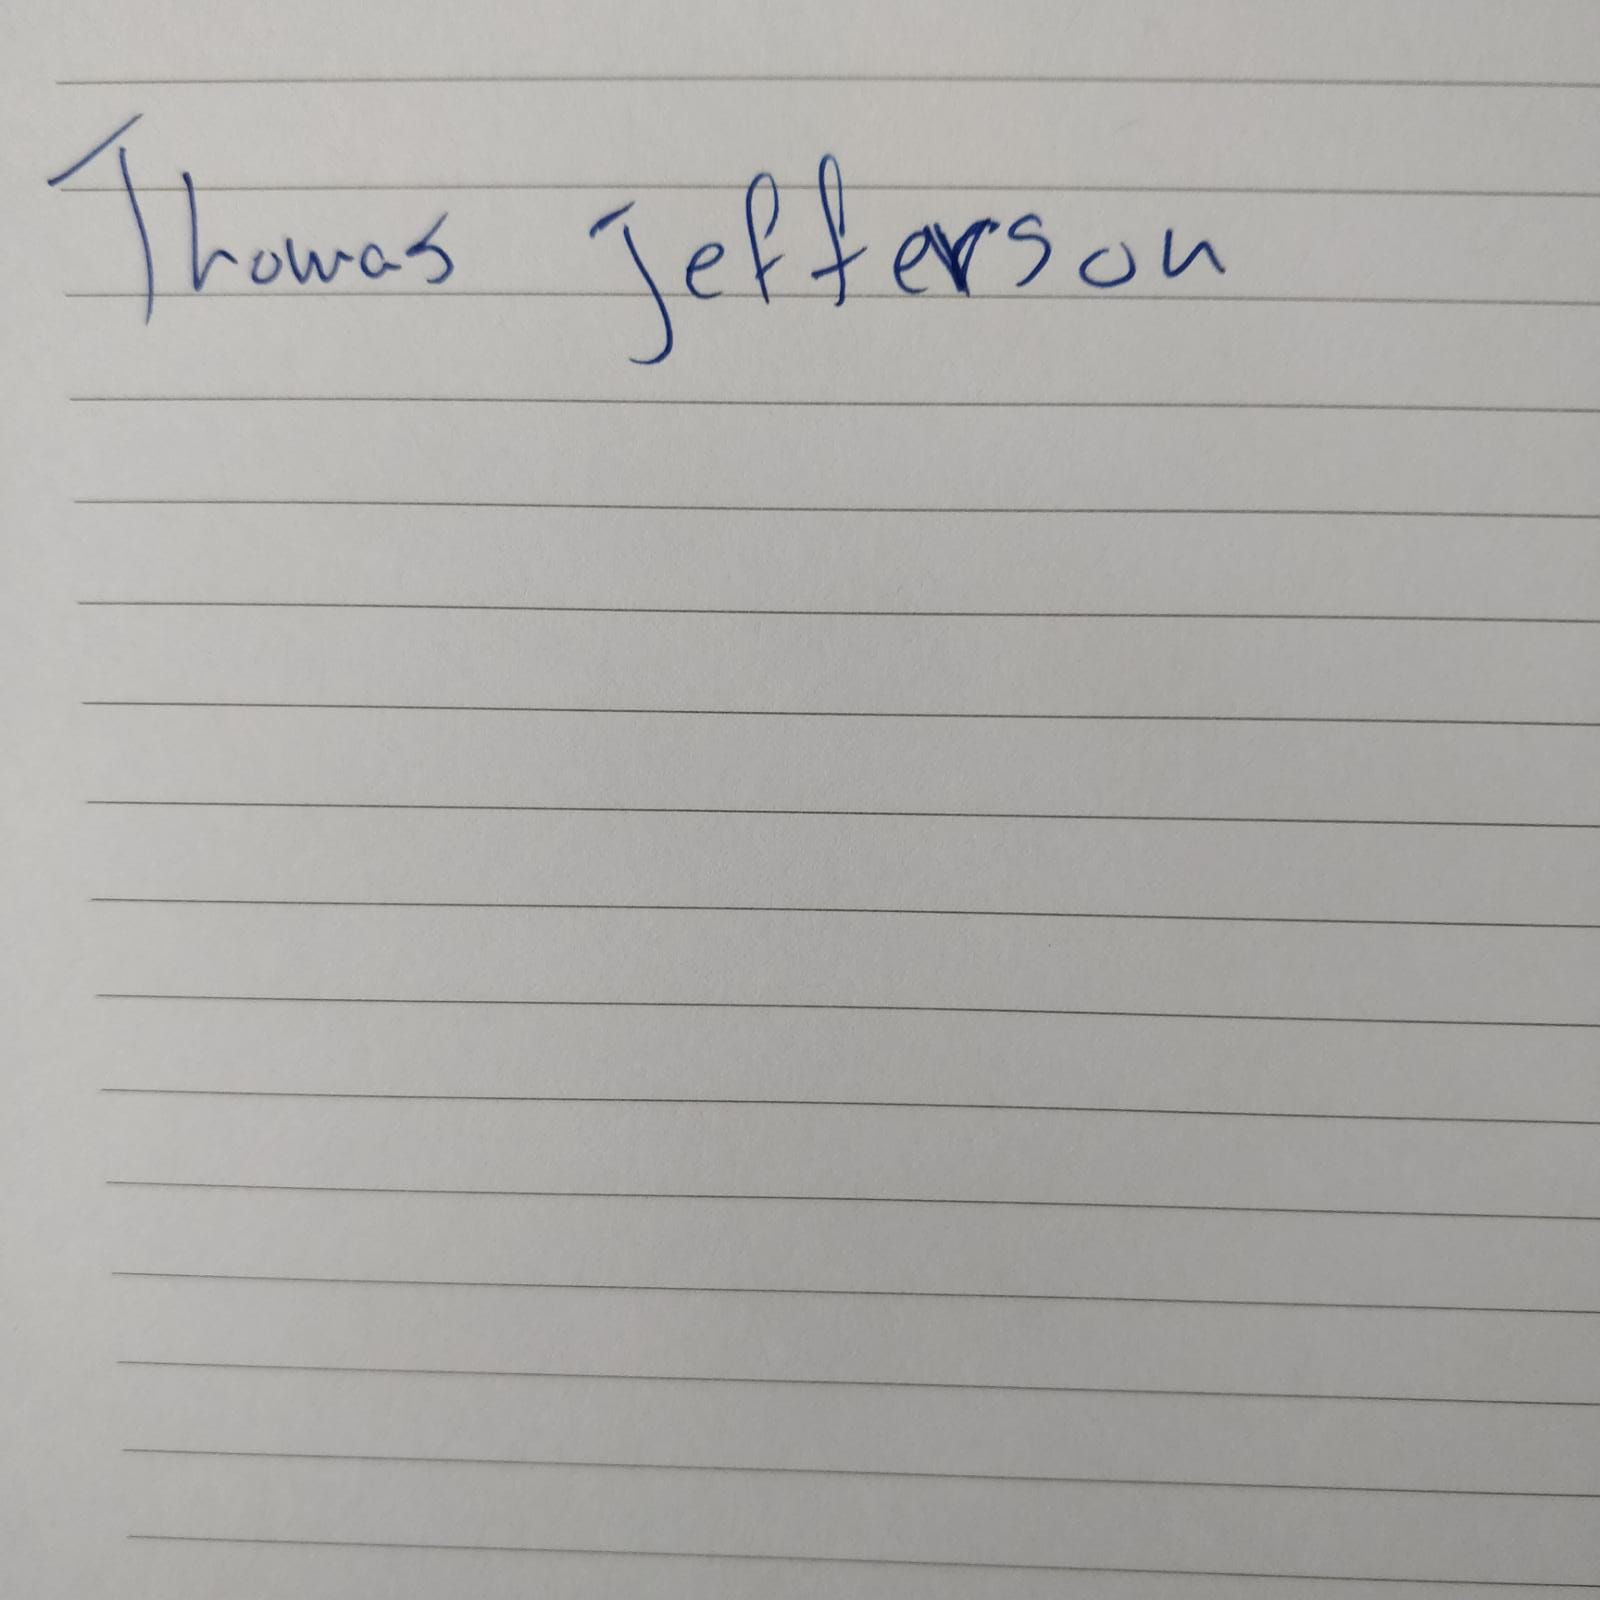 Thomas Jefferson